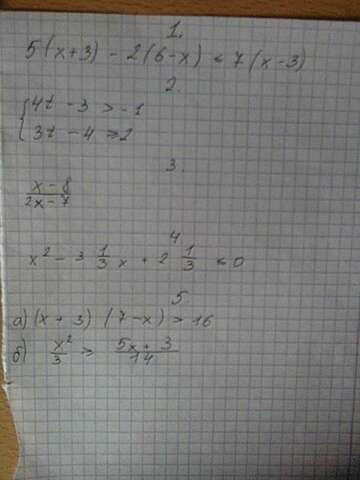 1.
5(x+3) - 2(6-x) < 7(x-3)
2.
{ 4t - 3 > -1
3t - 4 > 2
3.
x - 8 / 2x - 7
4
x² - 3 1/3 x + 2 1/3 < 0
5
а) (x + 3) (7-x) > 16
б) x²/3 > 5x + 3 / 14